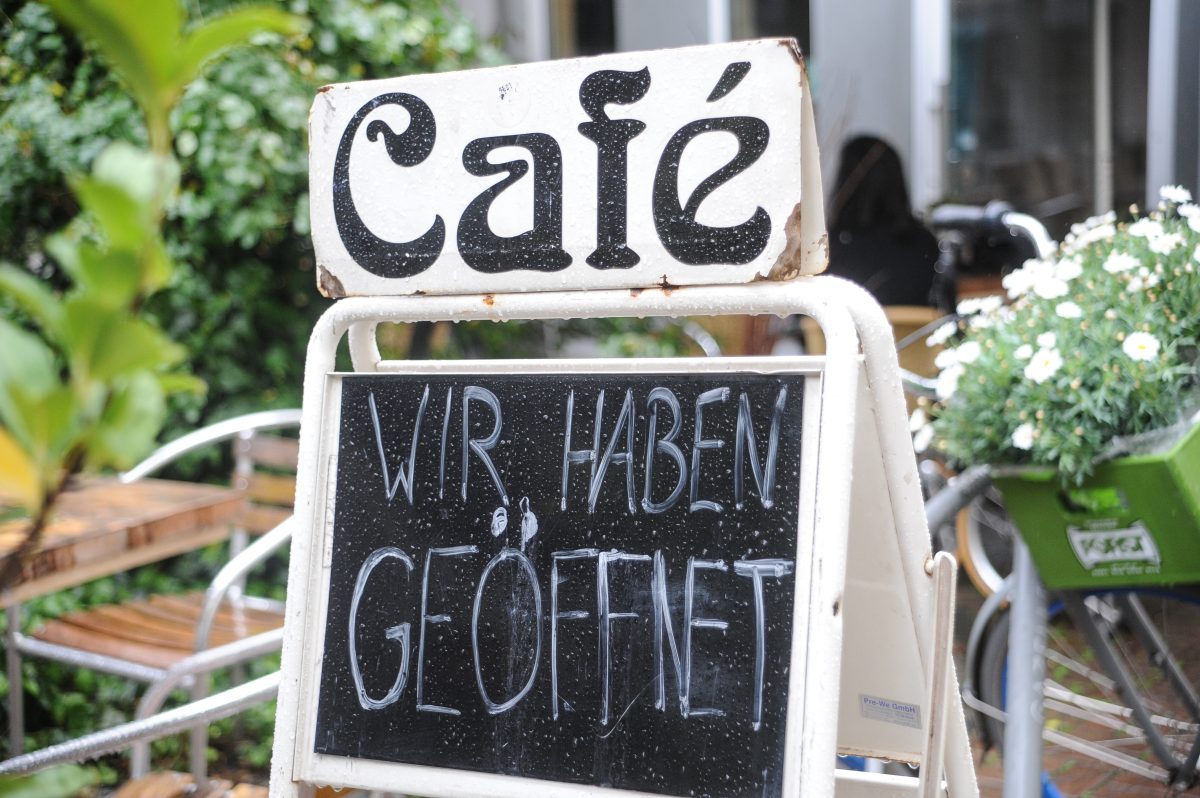 Café
WIR HABEN
GEÖFFNET
Pro-We GmbH